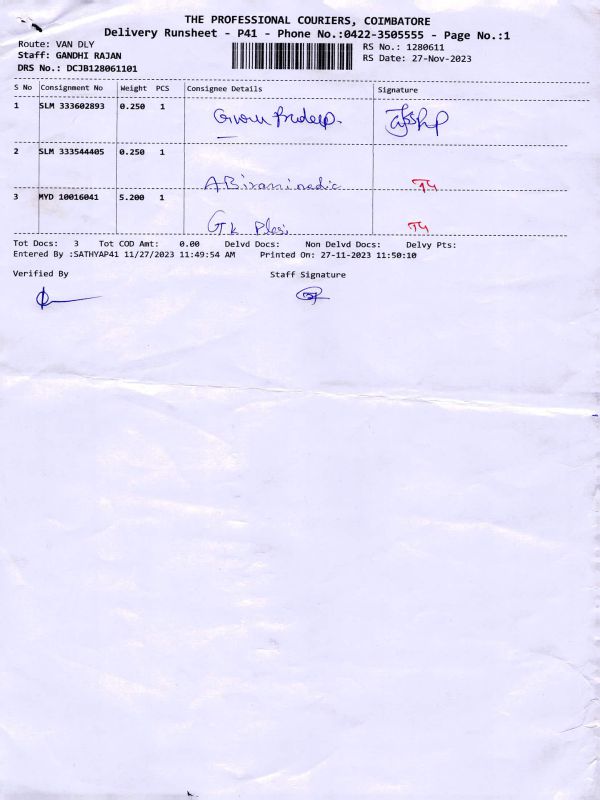 THE PROFESSIONAL COURIERS, COIMBATORE
Delivery Runsheet - P41 - Phone No.:0422-3505555 - Page No.:1
Route: VAN DLY
RS No.: 1280611
Staff: GANDHI RAJAN
RS Date: 27-Nov-2023
DRS No.: DCJB128061101
S No Consignment No Weight PCS Consignee Details Signature
1 SLM 333602893 0.250 1 Pradeep.
2 SLM 333544405 0.250 1
3 MYD 10016041 5.200 1
Tot Docs: 3 Tot COD Amt: 0.00 Delvd Docs: Non Delvd Docs: Delvy Pts:
Entered By :SATHYAP41 11/27/2023 11:49:54 AM Printed On: 27-11-2023 11:50:10
Verified By Staff Signature